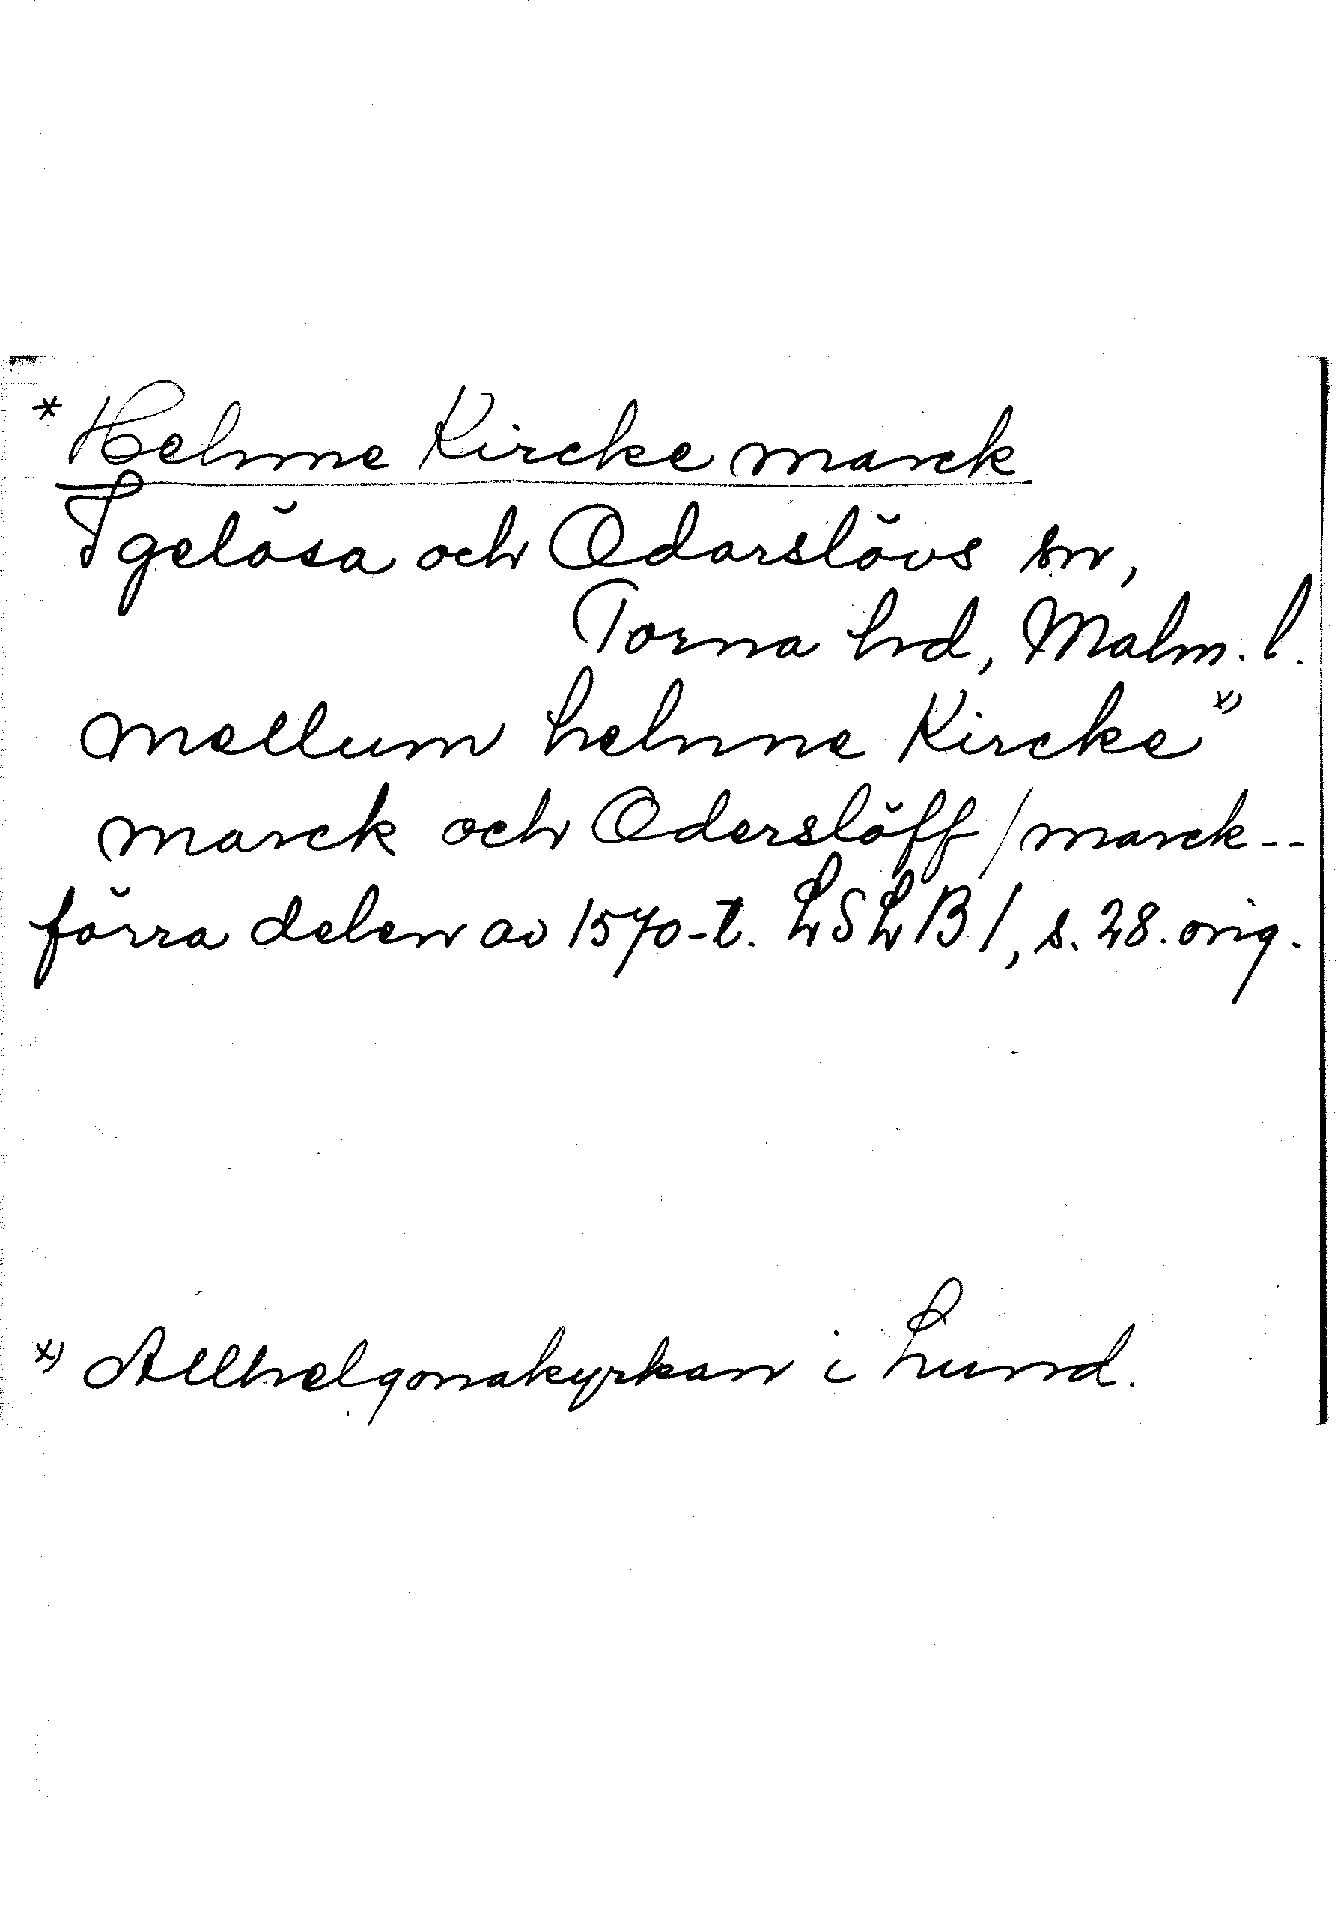 * Helnne Kircke marck
Igelösa och Odarslövs sn,
Torna hd, Malm. l.
mellum helnne Kircke x)
marck och Oderslöff / marck --
förra delen av 1570-t. LSLB 1, s. 28. orig.
x) Allhelgonakyrkan i Lund.